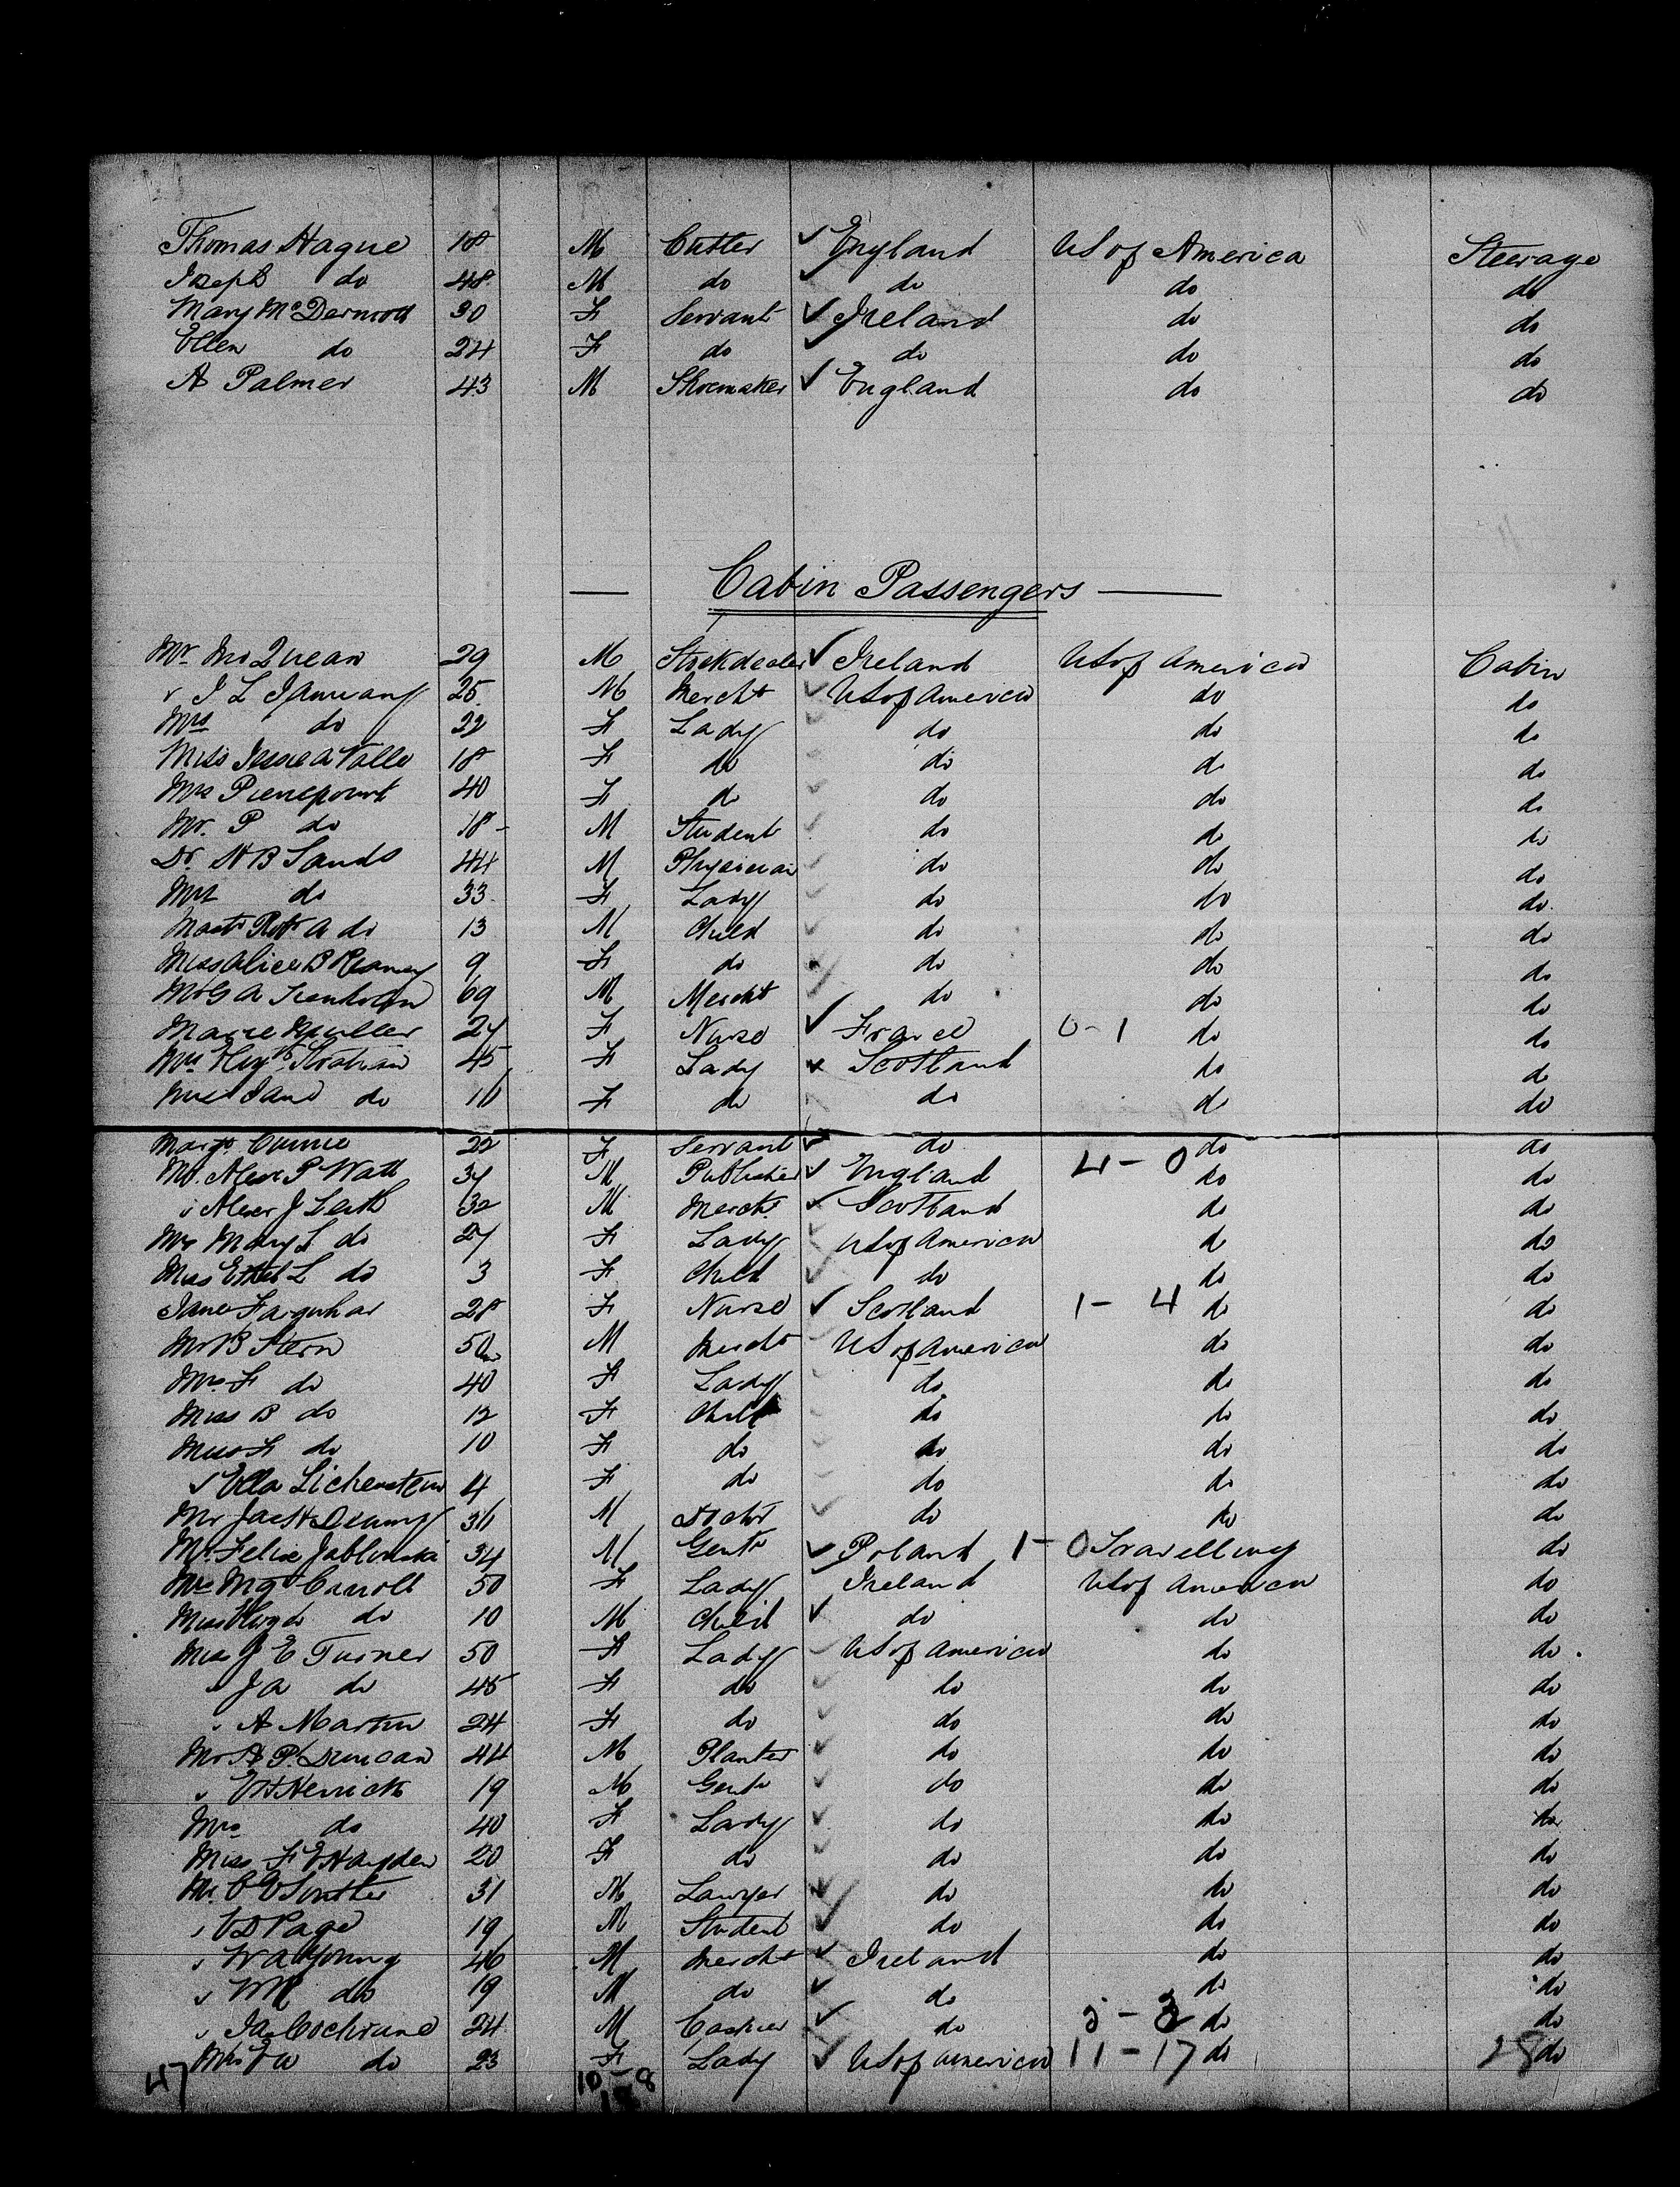 Thomas Hague 18 M Cutler ✓ England US of America Steerage
Joseph do 48 M do ✓ do do do
Mary McDermott 30 F Servant ✓ Ireland do do
Ellen do 24 F do ✓ do do do
A Palmer 43 M Shoemaker ✓ England do do
Cabin Passengers
Mr 29 M Stockdealer ✓ Ireland US of America Cabin
" J L 25 M Mercht ✓ US of America do do
Mrs do 22 F Lady do do do
Miss Jessie A 18 F do do do do
Mrs Pierrepont 40 F do do do do
Mr. P do 18 M Student do do do
Dr. H B Sands 44 M Physician do do do
Mrs do 33 F Lady do do do
Mastr Robt A do 13 M Child do do do
Miss Alice B 9 F do do do do
Mr G A 69 M Mercht do do do
Marie Muller 24 F Nurse ✓ France 0-1 do do
Mrs 45 F Lady Scotland do do
Miss Jane do 16 F do do do do
Margt Currie 22 F Servant ✓ do do do
Mr. Alexr P Watt 34 M Publisher ✓ England 4-0 do do
" Alexr J Leith 32 M Mercht ✓ Scotland do do
Mrs Mary L do 27 F Lady US of America do do
Miss Ethel L do 3 F Child do do do
Jane Farquhar 28 F Nurse ✓ Scotland 1-4 do do
Mr B Stern 50 M Mercht US of America do do
Mrs F do 40 F Lady do do do
Miss B do 12 F Child do do do
Miss F do 10 F do do do do
" Ella Lichenstein 4 F do do do do
Mr Jas H 36 M Doctr do do do
Mr Felix Jablonski 34 M Gentn ✓ Poland 1-0 Travelling do
Mrs Mgt Carroll 50 F Lady Ireland US of America do
Miss do 10 M Child ✓ do do do
Miss J E Turner 50 F Lady US of America do do
" J A do 45 F do do do do
" A Martin 24 F do do do do
Mr A P. Duncan 44 M Planter do do do
" E H Herrick 19 M Gentn do do do
Mrs do 40 F Lady do do do
Miss F E Hayden 20 F do do do do
Mr. C E 31 M Lawyer do do do
" E D Page 19 M Student do do do
" W A Young 46 M Mercht ✓ Ireland do do
" W M do 19 M do ✓ do do do
" Ja Cochrane 24 M Cashier ✓ do do do
Mrs do 23 F Lady ✓ US of America 11-17 do 28 do
47 10-8
18